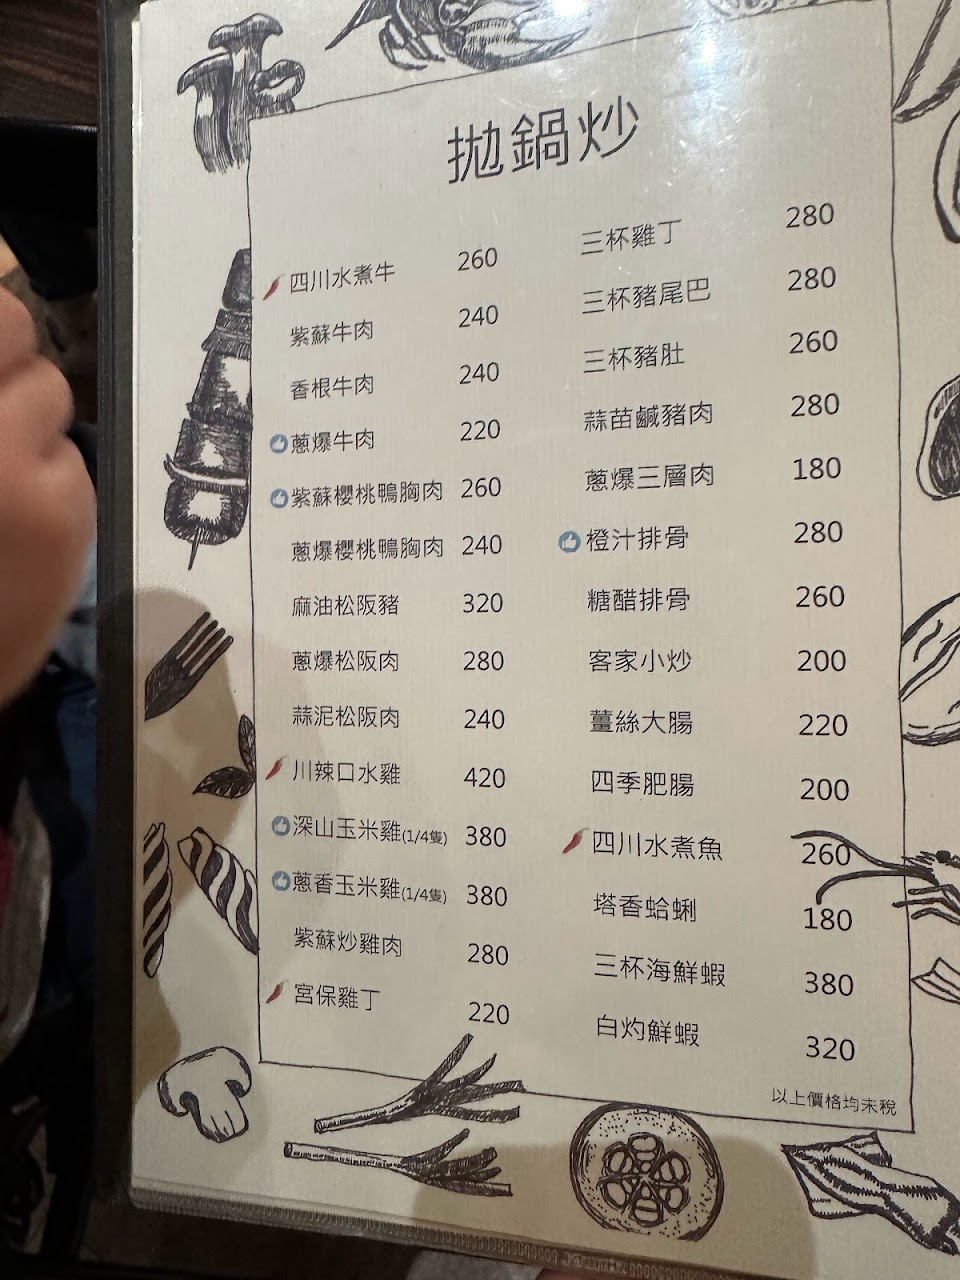 拋鍋炒
四川水煮牛 260
紫蘇牛肉 240
香根牛肉 240
蔥爆牛肉 220
紫蘇櫻桃鴨胸肉 260
蔥爆櫻桃鴨胸肉 240
麻油松阪豬 320
蔥爆松阪肉 280
蒜泥松阪肉 240
川辣口水雞 420
深山玉米雞(1/4隻) 380
蔥香玉米雞(1/4隻) 380
紫蘇炒雞肉 280
宮保雞丁 220
三杯雞丁 280
三杯豬尾巴 280
三杯豬肚 260
蒜苗鹹豬肉 280
蔥爆三層肉 180
橙汁排骨 280
糖醋排骨 260
客家小炒 200
薑絲大腸 220
四季肥腸 200
四川水煮魚 260
塔香蛤蜊 180
三杯海鮮蝦 380
白灼鮮蝦 320
以上價格均未稅